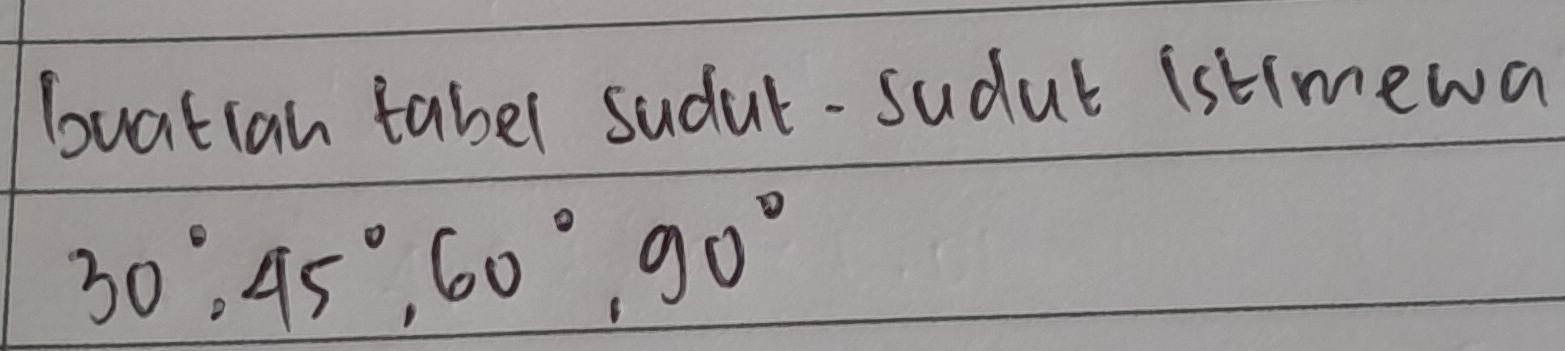 buatlah tabel sudut - sudut istimewa
30°, 45°, 60°, 90°